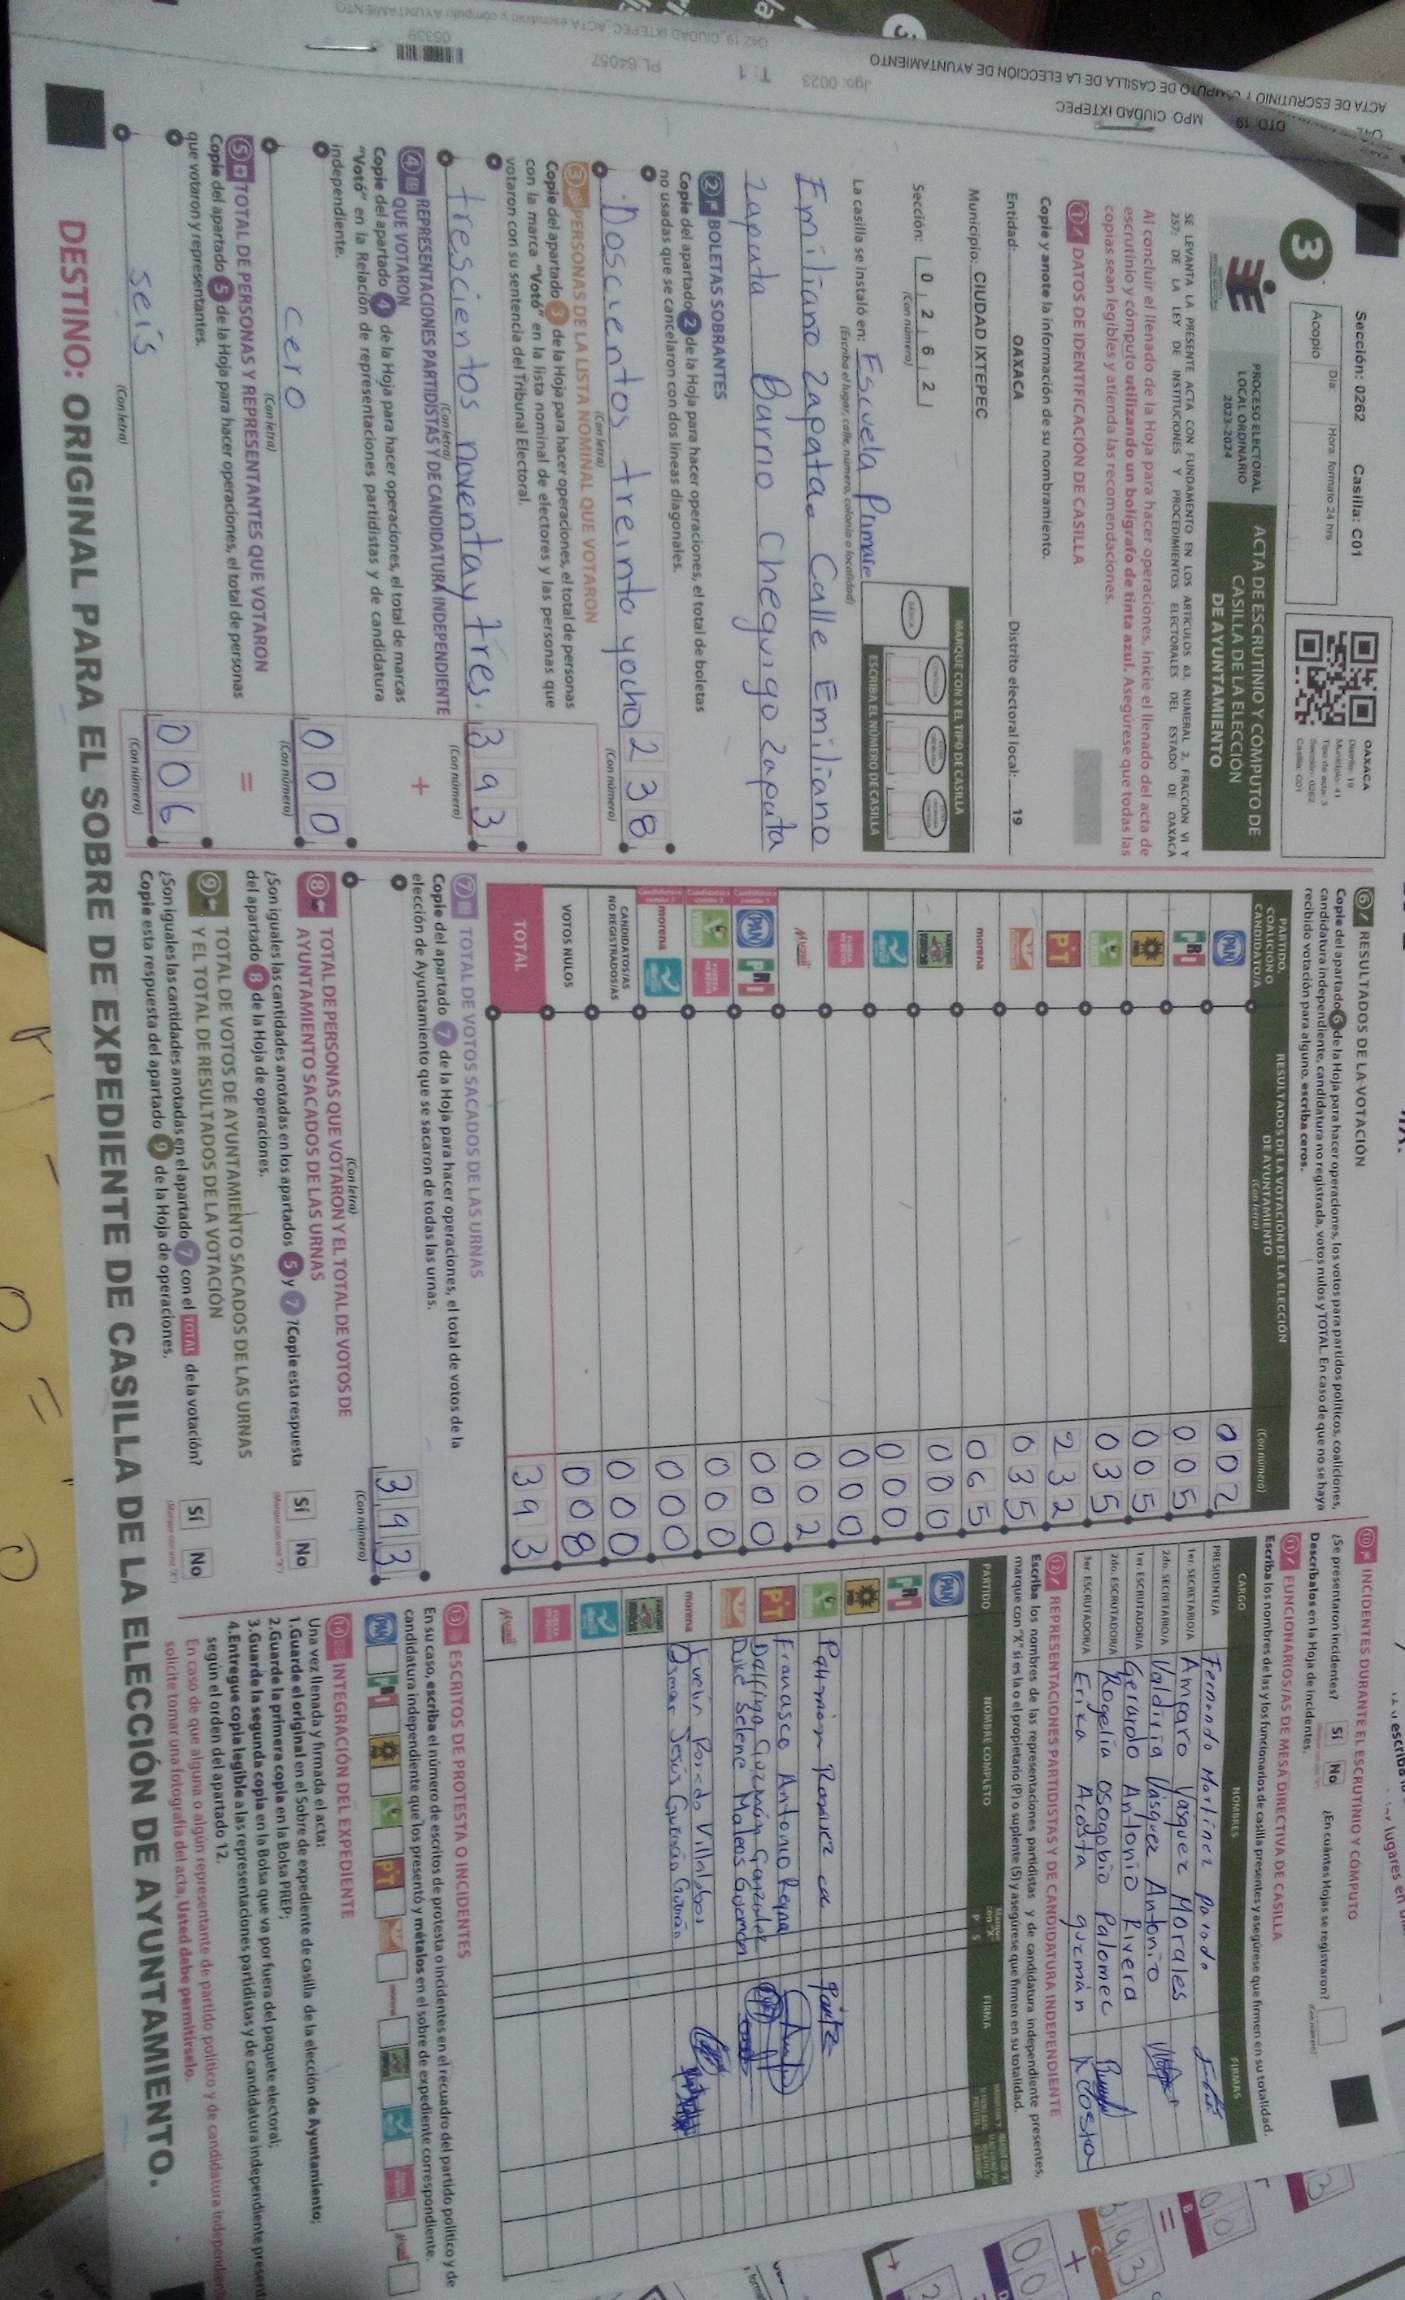 Sección: 0262 Casilla: C01
3
Día:
Hora: formato 24 hrs.
Acopio
OAXACA
Distrito: 19
Municipio: 41
Tipo de acta: 3
Sección: 0262
Casilla: C01
PROCESO ELECTORAL
LOCAL ORDINARIO
2023-2024
ACTA DE ESCRUTINIO Y CÓMPUTO DE
CASILLA DE LA ELECCIÓN
DE AYUNTAMIENTO
SE LEVANTA LA PRESENTE ACTA CON FUNDAMENTO EN LOS ARTÍCULOS 63, NUMERAL 2, FRACCIÓN VI Y
257; DE LA LEY DE INSTITUCIONES Y PROCEDIMIENTOS ELECTORALES DEL ESTADO DE OAXACA
Al concluir el llenado de la Hoja para hacer operaciones, inicie el llenado del acta de
escrutinio y cómputo utilizando un bolígrafo de tinta azul. Asegúrese que todas las
copias sean legibles y atienda las recomendaciones.
1 DATOS DE IDENTIFICACIÓN DE CASILLA
Copie y anote la información de su nombramiento.
Entidad: OAXACA Distrito electoral local: 19
Municipio: CIUDAD IXTEPEC
Sección: 0 2 6 2
(Con número)
MARQUE CON X EL TIPO DE CASILLA
ESCRIBA EL NÚMERO DE CASILLA
La casilla se instaló en: Escuela Primaria
(Escriba el lugar, calle, número, colonia o localidad)
Emiliano Zapata, Calle Emiliano
Zapata Barrio Cheguigo Zapata
2 BOLETAS SOBRANTES
Copie del apartado 2 de la Hoja para hacer operaciones, el total de boletas
no usadas que se cancelaron con dos líneas diagonales.
Doscientos treinta y ocho 238
(Con letra) (Con número)
3 PERSONAS DE LA LISTA NOMINAL QUE VOTARON
Copie del apartado 3 de la Hoja para hacer operaciones, el total de personas
con la marca "Votó" en la lista nominal de electores y las personas que
votaron con su sentencia del Tribunal Electoral.
trescientos noventa y tres. 393
(Con letra) (Con número)
4 REPRESENTACIONES PARTIDISTAS Y DE CANDIDATURA INDEPENDIENTE
QUE VOTARON
+
Copie del apartado 4 de la Hoja para hacer operaciones, el total de marcas
"Votó" en la Relación de representaciones partidistas y de candidatura
independiente.
cero 000
(Con letra) (Con número)
5 TOTAL DE PERSONAS Y REPRESENTANTES QUE VOTARON
=
Copie del apartado 5 de la Hoja para hacer operaciones, el total de personas
que votaron y representantes.
seis 006
(Con letra) (Con número)
6 RESULTADOS DE LA VOTACIÓN
Copie del apartado 6 de la Hoja para hacer operaciones, los votos para partidos políticos, coaliciones,
candidatura independiente, candidatura no registrada, votos nulos y TOTAL. En caso de que no se haya
recibido votación para alguno, escriba ceros.
PARTIDO,
COALICIÓN O
CANDIDATO/A
RESULTADOS DE LA VOTACIÓN DE LA ELECCIÓN
DE AYUNTAMIENTO
(Con letra)
(Con número)
PAN 002
PRI 005
005
035
PT 232
035
morena 065
000
000
000
002
PAN PRI 000
000
morena 000
CANDIDATOS/AS
NO REGISTRADOS/AS 000
VOTOS NULOS 008
TOTAL 393
7 TOTAL DE VOTOS SACADOS DE LAS URNAS
Copie del apartado 7 de la Hoja para hacer operaciones, el total de votos de la
elección de Ayuntamiento que se sacaron de todas las urnas.
393
(Con letra) (Con número)
8 TOTAL DE PERSONAS QUE VOTARON Y EL TOTAL DE VOTOS DE
AYUNTAMIENTO SACADOS DE LAS URNAS
¿Son iguales las cantidades anotadas en los apartados 5 y 7 ? Copie esta respuesta
del apartado 8 de la Hoja de operaciones.
Sí No
9 TOTAL DE VOTOS DE AYUNTAMIENTO SACADOS DE LAS URNAS
Y EL TOTAL DE RESULTADOS DE LA VOTACIÓN
¿Son iguales las cantidades anotadas en el apartado 7 con el TOTAL de la votación?
Copie esta respuesta del apartado 9 de la Hoja de operaciones.
Sí No
10 INCIDENTES DURANTE EL ESCRUTINIO Y CÓMPUTO
¿Se presentaron incidentes? Sí No ¿En cuántas Hojas se registraron?
Descríbalos en la Hoja de incidentes.
11 FUNCIONARIOS/AS DE MESA DIRECTIVA DE CASILLA
Escriba los nombres de las y los funcionarios de casilla presentes y asegúrese que firmen en su totalidad.
CARGO NOMBRES FIRMAS
PRESIDENTE/A Fernando Martínez Parada
1er. SECRETARIO/A Amparo Vasquez Morales
2do. SECRETARIO/A Valdiria Vásquez Antonio
1er. ESCRUTADOR/A Gerardo Antonio Rivera
2do. ESCRUTADOR/A Rogelia Osogobio Palomec
3er. ESCRUTADOR/A Erika Acosta guzmán Acosta
12 REPRESENTACIONES PARTIDISTAS Y DE CANDIDATURA INDEPENDIENTE
Escriba los nombres de las representaciones partidistas y de candidatura independiente presentes,
marque con "X" si es la o el propietario (P) o suplente (S) y asegúrese que firmen en su totalidad.
PARTIDO NOMBRE COMPLETO P S FIRMA
PAN
PRI
Francisco Antonio Reyna
PT Dalfina Guzmán González
Dike Selene Mateos Guzmán
morena Evelin Parada Villalobos
Osmar Jesús Guzmán Guzmán
13 ESCRITOS DE PROTESTA O INCIDENTES
En su caso, escriba el número de escritos de protesta o incidentes en el recuadro del partido político y de
candidatura independiente que los presentó y métalos en el sobre de expediente correspondiente.
14 INTEGRACIÓN DEL EXPEDIENTE
Una vez llenada y firmada el acta:
1.Guarde el original en el Sobre de expediente de casilla de la elección de Ayuntamiento;
2.Guarde la primera copia en la Bolsa PREP;
3.Guarde la segunda copia en la Bolsa que va por fuera del paquete electoral;
4.Entregue copia legible a las representaciones partidistas y de candidatura independiente
según el orden del apartado 12.
En caso de que alguna o algún representante de partido político y de candidatura
solicite tomar una fotografía del acta, Usted debe permitírselo.
DESTINO: ORIGINAL PARA EL SOBRE DE EXPEDIENTE DE CASILLA DE LA ELECCIÓN DE AYUNTAMIENTO.
ACTA DE ESCRUTINIO Y CÓMPUTO DE CASILLA DE LA ELECCIÓN DE AYUNTAMIENTO
DTO. 19 MPO. CIUDAD IXTEPEC
Jgo: 0023 T: 1 PL: 64057
05339